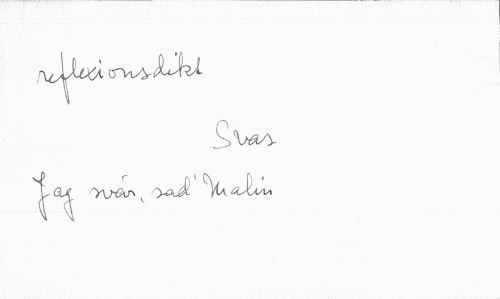 reflexionsdikt
Svar
Jag svär, sad' Malin